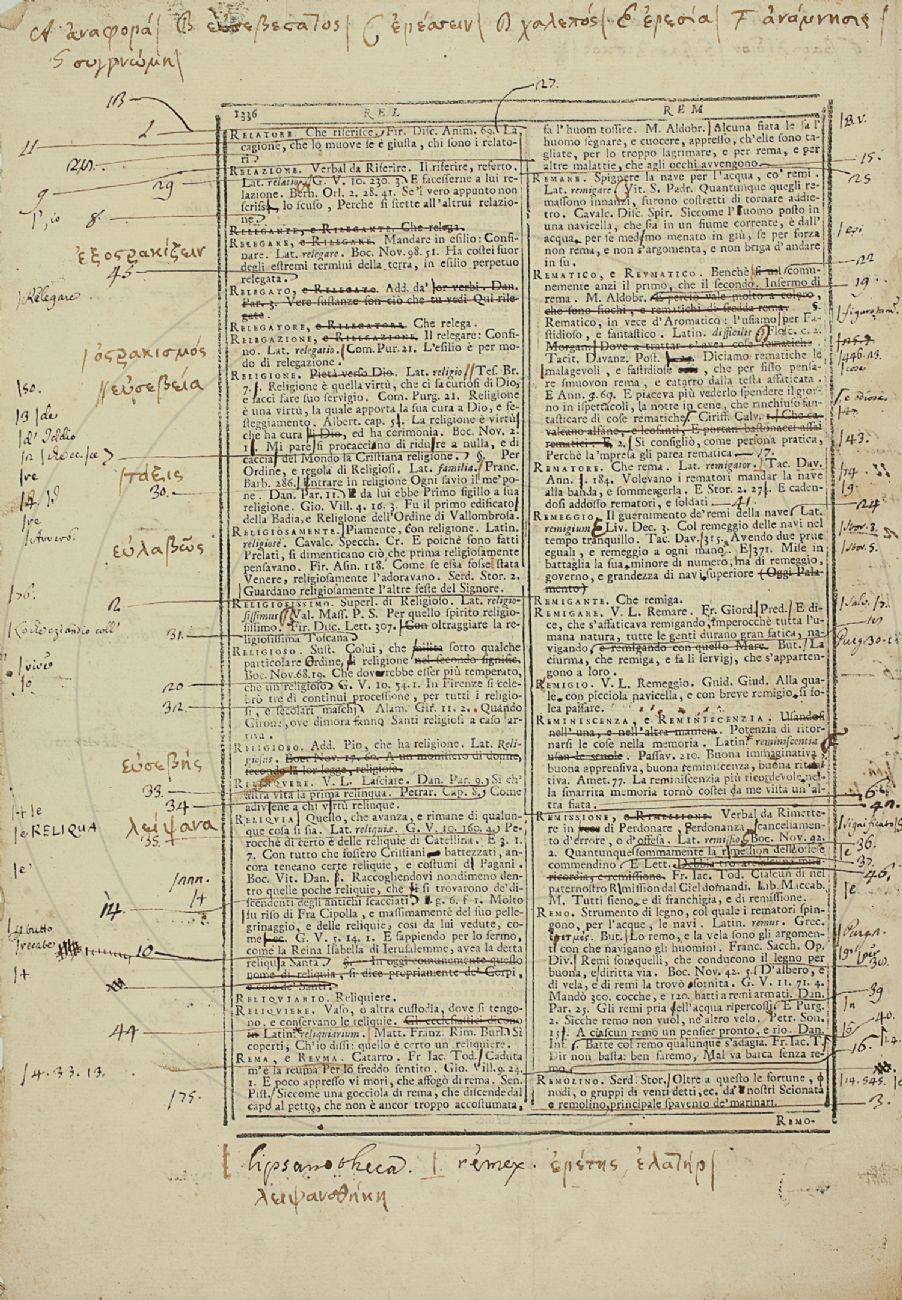 A ἀναφορά| B εὐσεβέσατος| C ἐρέασειν| D χαλεπός| E ἐρεσία| F ἀνάμνησις|
G συγγνώμη|
1336 REL
RELATORE. Che riferisce. Fir. Disc. Anim. 69. La
cagione, che lo muove se è giusta, chi sono i relato-
ri
RELAZIONE. Verbal da Riferire. Il riferire, referto.
Lat. relatio. G. V. 10. 230. 3. E facesserne a lui re-
lazione. Bern. Orl. 2. 28. 41. Se'l vero appunto non
scrisse, lo scuso, Perchè si stette all'altrui relazio-
ne.
RELEGANTE, e RILEGANTE. Che relega.
RELEGARE, e RILEGARE. Mandare in esilio: Confi-
nare. Lat. relegare. Boc. Nov. 98. 51. Ha costei fuor
degli estremi termini della terra, in esilio perpetuo
relegata.
RELEGATO, e RILEGATO. Add. da' lor verbi. Dan.
Par. 3. Vere sustanze son ciò che tu vedi Qui rile-
gate
RELEGATORE, e RILEGATORE. Che relega.
RELEGAZIONE, e RILEGAZIONE. Il relegare: Confi-
no. Lat. relegatio. Com. Pur. 21. L'esilio è per mo-
do di relegazione.
RELIGIONE. Pietà verso Dio. Lat. religio. Tes. Br.
7. Religione è quella virtù, che ci fa curiosi di Dio,
e facci fare suo servigio. Com. Purg. 21. Religione
è una virtù, la quale apporta la sua cura a Dio, e fe-
steggiamento. Albert. cap. 5. La religione è virtù,
che ha cura di Dio, ed ha cerimonia. Boc. Nov. 2.
Mi pare si procaccino di ridure a nulla, e di
cacciar del Mondo la Cristiana religione. §. Per
Ordine, e regola di Religiosi. Lat. familia. Franc.
Barb. 286. Entrare in religione Ogni savio il me' po-
ne. Dan. Par. 11. E da lui ebbe Primo sigillo a sua
religione. Gio. Vill. 4. 16. 3. Fu il primo edificato
della Badia, e Religione dell'Ordine di Vallombrosa.
RELIGIOSAMENTE. Piamente, Con religione. Latin.
religiosè. Cavalc. Specch. Cr. E poichè sono fatti
Prelati, si dimenticano ciò che prima religiosamente
pensavano. Fir. Asin. 118. Come se essa fosse stata
Venere, religiosamente l'adoravano. Serd. Stor. 2.
Guardano religiosamente l'altre feste del Signore.
RELIGIOSISSIMO. Superl. di Religioso. Lat. religio-
sissimus. Val. Mass. P. S. Per quello spirito religio-
sissimo. Fir. Disc. Lett. 307. Con oltraggiare la re-
ligiosissima Toscana
RELIGIOSO. Sust. Colui, che milita sotto qualche
particolare Ordine di religione nel secondo signific.
Boc. Nov. 68. 19. Che dovrebbe esser più temperato,
che un religioso. G. V. 10. 54. 1. In Firenze si cele-
brò tre dì continui processione, per tutti i religio-
si, e secolari maschi. Alam. Gir. 11. 2. Quando
Girone, ove dimora fanno Santi religiosi a caso ar-
riva.
RELIGIOSO. Add. Pio, che ha religione. Lat. Reli-
giosus. Boc. Nov. 17. 60. A un monistero di donne,
secondo la lor legge, religiose.
RELINQUERE. V. L. Lasciare. Dan. Par. 9. Sì ch'
altra vita la prima relinqua. Petrar. Cap. 8. Come
adiviene a chi virtù relinque.
RELIQUIA. Quello, che avanza, e rimane di qualun-
que cosa si sia. Lat. reliquie. G. V. 10. 160. 4. Pe-
rocchè di certo è delle reliquie di Catellina. E 3. 1.
7. Con tutto che fossero Cristiani battezzati, an-
cora teneano certe reliquie, e costumi di Pagani.
Boc. Vit. Dan. Raccogliendovi nondimeno den-
tro quelle poche reliquie, che si trovarono de' di-
scendenti degli antichi scacciati. g. 6. f. 1. Molto
su riso di Fra Cipolla, e massimamente del suo pelle-
grinaggio, e delle reliquie, così da lui vedute, co-
me G. V. 5. 14. 1. E sappiendo per lo fermo,
come la Reina Isabella di Ierusalemme, avea la detta
reliquia Santa. §. In oggi comunemente questo
nome di reliquia, si dice propriamente de' Corpi,
e cose de' Santi.
RELIQUIARIO. Reliquiere.
RELIQUIERE. Vaso, o altra custodia, dove si tengo-
no, e conservano le reliquie. Gli ecclesiastici dicono
in Latin. reliquiarium. Matt. Franz. Rim. Burl. Si
coperti, Ch'io dissi: quello è certo un reliquiere.
REMA, e REUMA. Catarro. Fr. Iac. Tod. Caduta
m'è la reuma Per lo freddo sentito. Gio. Vill. 9. 24.
1. E poco appresso vi morì, che affogò di rema. Sen.
Pist. Siccome una gocciola di rema, che discende dal
capo al petto, che non è ancor troppo accostumata,
REM
fa l'huom tossire. M. Aldobr. Alcuna fiata le fa l'
huomo segnare, e cuocere, appresso, ch'elle sono ta-
gliate, per lo troppo lagrimare, e per rema, e per
altre malattie, che agli occhi avvengono.
REMARE. Spignere la nave per l'acqua, co' remi.
Lat. remigare. Vit. S. Padr. Quantunque quegli re-
massono innanzi, furono costretti di tornare addie-
tro. Cavalc. Disc. Spir. Siccome l'uomo posto in
una navicella, che sia in un fiume corrente, è dall'
acqua per se medesmo menato in giù, se per forza
non rema, e non s'argomenta, e non briga d'andare
in su.
REMATICO, e REUMATICO. Benchè si usi comu-
nemente anzi il primo, che il secondo. Infermo di
rema. M. Aldobr. E perciò vale molto a coloro,
che sono fiochi, e rematichi di fredda rema. §.
Rematico, in vece d'Aromatico: l'usiamo per Fa-
stidioso, e fantastico. Latin. difficilis. Flos. c. 2.
Morgant. Dove a trattar s'avea cose rematiche.
Tacit. Davanz. Post. Diciamo rematiche le
malagevoli, e fastidiose, che per fiso pensa-
re smuovon rema, e catarro dalla testa affaticata.
E Ann. 9. 69. E piaceva più vederlo spendere il gior-
no in ispettacoli, la notte in cene, che rinchiuso fan-
tasticare di cose rematiche. Ciriff. Calv. 1. Che ca-
valcano alfane, e leofanti, E portan bastonacci assai
rematici. E 2. Si consigliò, come persona pratica,
Perchè la 'mpresa gli parea rematica.
REMATORE. Che rema. Lat. remigator. Tac. Dav.
Ann. 184. Volevano i rematori mandar la nave
alla banda, e sommergerla. E Stor. 2. 27. E caden-
dosi addosso rematori, e soldati
REMEGGIO. Il guernimento de' remi della nave. Lat.
remigium. Liv. Dec. 3. Col remeggio delle navi nel
tempo tranquillo. Tac. Dav. 315. Avendo due prue
eguali, e remeggio a ogni mano. E 371. Mise in
battaglia la sua, minore di numero, ma di remeggio,
governo, e grandezza di navi superiore (Oggi Pala-
mento)
REMIGANTE. Che remiga.
REMIGARE. V. L. Remare. Fr. Giord. Pred. E di-
ce, che s'affaticava remigando, imperocchè tutta l'u-
mana natura, tutte le genti durano gran fatica, na-
vigando, e remigando con questo Mare. But. La
ciurma, che remiga, e fa li servigj, che s'apparten-
gono a loro.
REMIGIO. V. L. Remeggio. Guid. Giud. Alla qua-
le, con picciola navicella, e con breve remigio, si fo-
lea passare.
REMINISCENZA, e REMINISCENZIA. Usandosi
nell'una, e nell'altra maniera. Potenzia di ritor-
narsi le cose nella memoria. Latin. reminiscentia
usan le scuole. Passav. 210. Buona immaginativa,
buona apprensiva, buona reminiscenza, buona riten-
tiva. Amet. 77. La reminiscenzia più ricordevole, nel-
la smarrita memoria tornò costei da me vista un'al-
tra fiata.
REMISSIONE, e RIMISSIONE. Verbal da Rimette-
re in vece di Perdonare, Perdonanza, cancellamen-
to d'errore, o d'offesa. Lat. remissio. Boc. Nov. 92.
2. Quantunque sommamente la remession dell'offese
commendino. E Lett. Debbia tro ate alcuna mise-
ricordia, e remissione. Fr. Iac. Tod. Ciascun dì nel
paternostro Remission dal Ciel domandi. Lib. Maccab.
M. Tutti sieno, e di franchigia, e di remissione.
REMO. Strumento di legno, col quale i rematori spin-
gono, per l'acque, le navi. Latin. remus. Grec.
ἐρετμός. But. Lo remo, e la vela sono gli argomen-
ti con che navigano gli huomini. Franc. Sacch. Op.
Div. Remi son quelli, che conducono il legno per
buona, e diritta via. Boc. Nov. 42. 5. D'albero, e
di vela, e di remi la trovò fornita. G. V. 11. 71. 4.
Mandò 300. cocche, e 120. batti a remi armati. Dan.
Par. 25. Gli remi pria nell'acqua ripercossi. E Purg.
2. Sicche remo non vuol, ne' altro velo. Petr. Son.
151. A ciascun remo un pensier pronto, e rio. Dan.
Inf. Batte col remo qualunque s'adagia. Fr. Iac. T.
Dir non basta: ben faremo, Mal va barca senza re-
mo.
REMOLINO. Serd. Stor. Oltre a questo le fortune, o
nodi, o gruppi di venti detti, ec. da' nostri Scionata
e remolino, principale spavento de' marinari.
REMO-
13
27.
11
29
9
8.
ἐξοσρακίζειν
45
Relegare
ὀσρακισμός
εὐσέβεια
τάξις
30.
εὐλαβῶς
2
31.
20
32.
εὐσεβής
33.
34
RELIQUA
λείψανα
35.
14
10
44
4. 33. 13.
75.
B.V.
15.
25
22
19.
43.
24
Stor. 5.
Purg. 30.
6.
significato
36.
37.
46.
39
40.
16.
14. 545.
3.
lipsanotheca. | rēmex. ἐρέτης, ἐλατήρ|
λειψανοθήκη